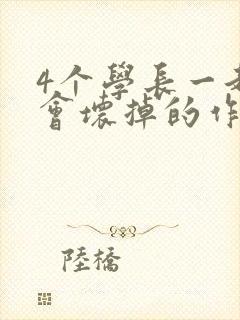 4个學長一
會壞掉的作
陸橋